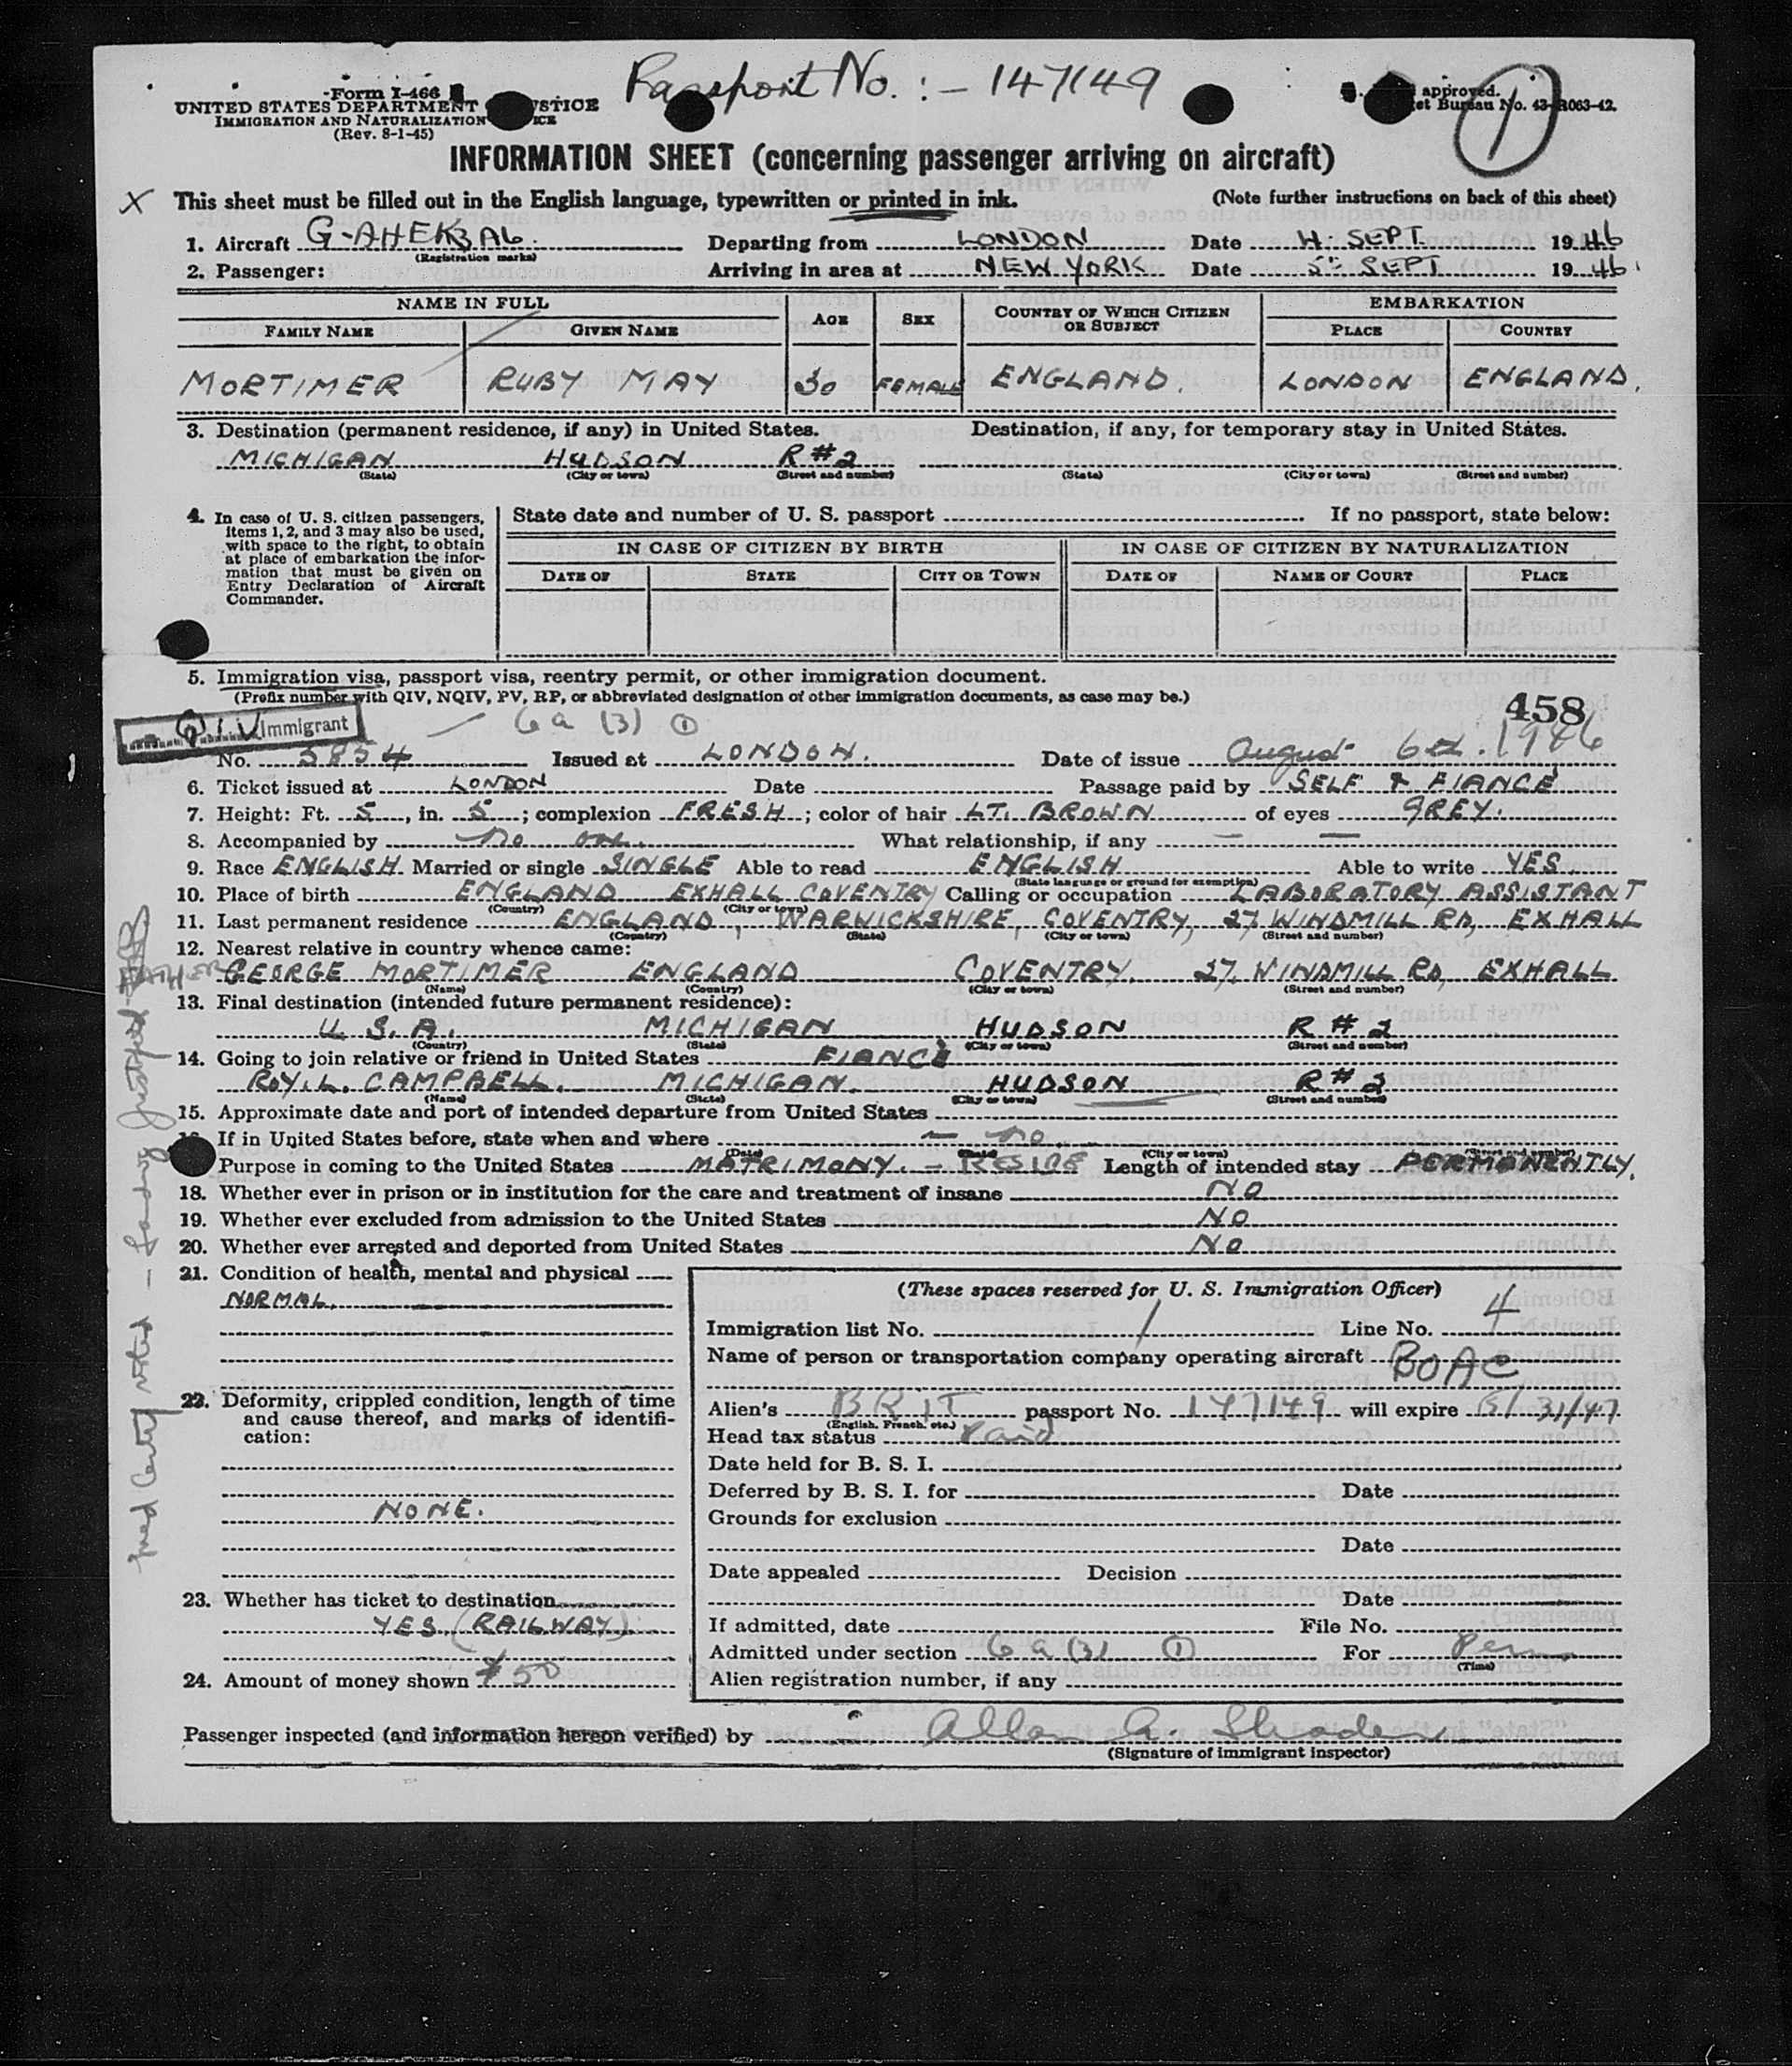 Passport No. :- 147149
Form I-466
UNITED STATES DEPARTMENT
IMMIGRATION AND NATURALIZATION
(Rev. 8-1-45)
approved.
Bureau No. 43-R063-42.
1
INFORMATION SHEET (concerning passenger arriving on aircraft)
X This sheet must be filled out in the English language, typewritten or printed in ink. (Note further instructions on back of this sheet)
1. Aircraft G-AHEK Departing from LONDON Date 4. SEPT. 1946
(Registration marks)
2. Passenger: Arriving in area at NEW YORK Date 5th SEPT 1946.
NAME IN FULL AGE SEX COUNTRY OF WHICH CITIZEN OR SUBJECT EMBARKATION
FAMILY NAME GIVEN NAME PLACE COUNTRY
MORTIMER RUBY MAY 30 FEMALE ENGLAND. LONDON ENGLAND.
3. Destination (permanent residence, if any) in United States. Destination, if any, for temporary stay in United States.
MICHIGAN HUDSON R#2
(State) (City or town) (Street and number) (State) (City or town) (Street and number)
4. In case of U. S. citizen passengers, items 1, 2, and 3 may also be used, with space to the right, to obtain at place of embarkation the information that must be given on Entry Declaration of Aircraft Commander.
State date and number of U. S. passport If no passport, state below:
IN CASE OF CITIZEN BY BIRTH IN CASE OF CITIZEN BY NATURALIZATION
DATE OF STATE CITY OR TOWN DATE OF NAME OF COURT PLACE
5. Immigration visa, passport visa, reentry permit, or other immigration document.
(Prefix number with QIV, NQIV, PV, RP, or abbreviated designation of other immigration documents, as case may be.)
458
QIV Immigrant 6a (3) 1
No. 5854 Issued at LONDON. Date of issue August 6th. 1946
6. Ticket issued at LONDON Date Passage paid by SELF & FIANCÉ
7. Height: Ft. 5, in. 5; complexion FRESH; color of hair LT. BROWN of eyes GREY.
8. Accompanied by no one. What relationship, if any — —
9. Race ENGLISH. Married or single SINGLE Able to read ENGLISH Able to write YES.
(State language or ground for exemption)
10. Place of birth ENGLAND EXHALL COVENTRY Calling or occupation LABORATORY ASSISTANT
(Country) (City or town)
11. Last permanent residence ENGLAND, WARWICKSHIRE, COVENTRY, 27, WINDMILL RD, EXHALL
(Country) (State) (City or town) (Street and number)
12. Nearest relative in country whence came:
FATHER GEORGE MORTIMER ENGLAND COVENTRY. 27, WINDMILL RD, EXHALL
(Name) (Country) (City or town) (Street and number)
13. Final destination (intended future permanent residence):
U. S. A. MICHIGAN HUDSON R # 2
(Country) (State) (City or town) (Street and number)
14. Going to join relative or friend in United States FIANCÉ
ROY. L. CAMPBELL. MICHIGAN. HUDSON R # 2
(Name) (State) (City or town) (Street and number)
15. Approximate date and port of intended departure from United States
If in United States before, state when and where — no.
(Date) (State) (City or town) (Street and number)
Purpose in coming to the United States MATRIMONY. - RESIDE Length of intended stay PERMANENTLY.
18. Whether ever in prison or in institution for the care and treatment of insane NO
19. Whether ever excluded from admission to the United States NO
20. Whether ever arrested and deported from United States NO
21. Condition of health, mental and physical
NORMAL.
22. Deformity, crippled condition, length of time and cause thereof, and marks of identification:
NONE.
23. Whether has ticket to destination
YES (RAILWAY)
24. Amount of money shown $50
(These spaces reserved for U. S. Immigration Officer)
Immigration list No. 1 Line No. 4
Name of person or transportation company operating aircraft BOAC
Alien's BRIT passport No. 147149 will expire 5/31/47
(English, French, etc.)
Head tax status Paid
Date held for B. S. I.
Deferred by B. S. I. for Date
Grounds for exclusion
Date
Date appealed Decision
Date
If admitted, date File No.
Admitted under section 6 a (3) 1 For Perm.
(Time)
Alien registration number, if any
Passenger inspected (and information hereon verified) by Allan A.
(Signature of immigrant inspector)
med Certif noted - Landing